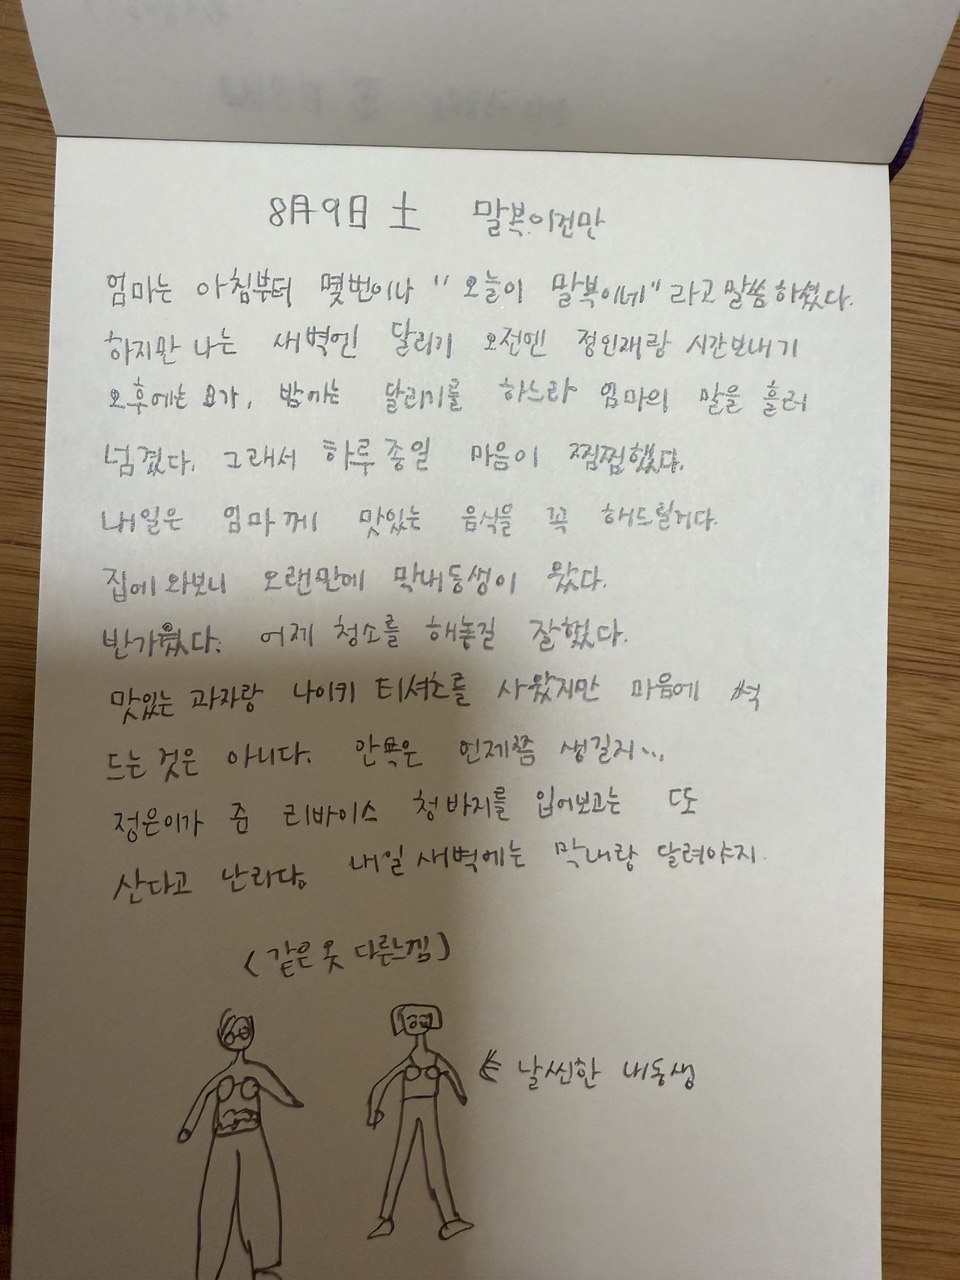 8月9日 土 말복이건만
엄마는 아침부터 몇번이나 "오늘이 말복이네"라고 말씀하셨다.
하지만 나는 새벽엔 달리기 오전엔 정인재랑 시간보내기
오후에는 요가, 밤에는 달리기를 하느라 엄마의 말을 흘려
넘겼다. 그래서 하루종일 마음이 찜찜했다.
내일은 엄마께 맛있는 음식을 꼭 해드릴거다.
집에 와보니 오랜만에 막내동생이 왔다.
반가웠다. 어제 청소를 해놓길 잘했다.
맛있는 과자랑 나이키 티셔츠를 사왔지만 마음에 썩
드는 것은 아니다. 안목은 언제쯤 생길지...
정은이가 준 리바이스 청바지를 입어보고는 또
산다고 난리다. 내일 새벽에는 막내랑 달려야지.
(같은 옷 다른느낌)
날씬한 내동생